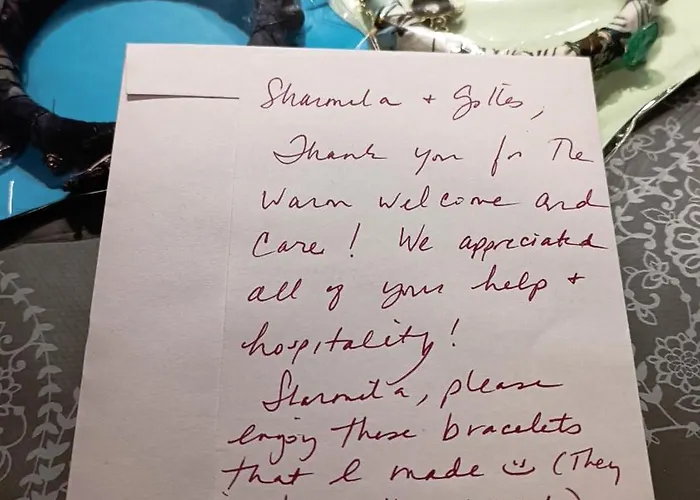 Sharmila +
Thank you for The
warm welcome and
care! We appreciated
all of your help +
hospitality!
Sharmila, please
enjoy these bracelets
that I made ☺ (They